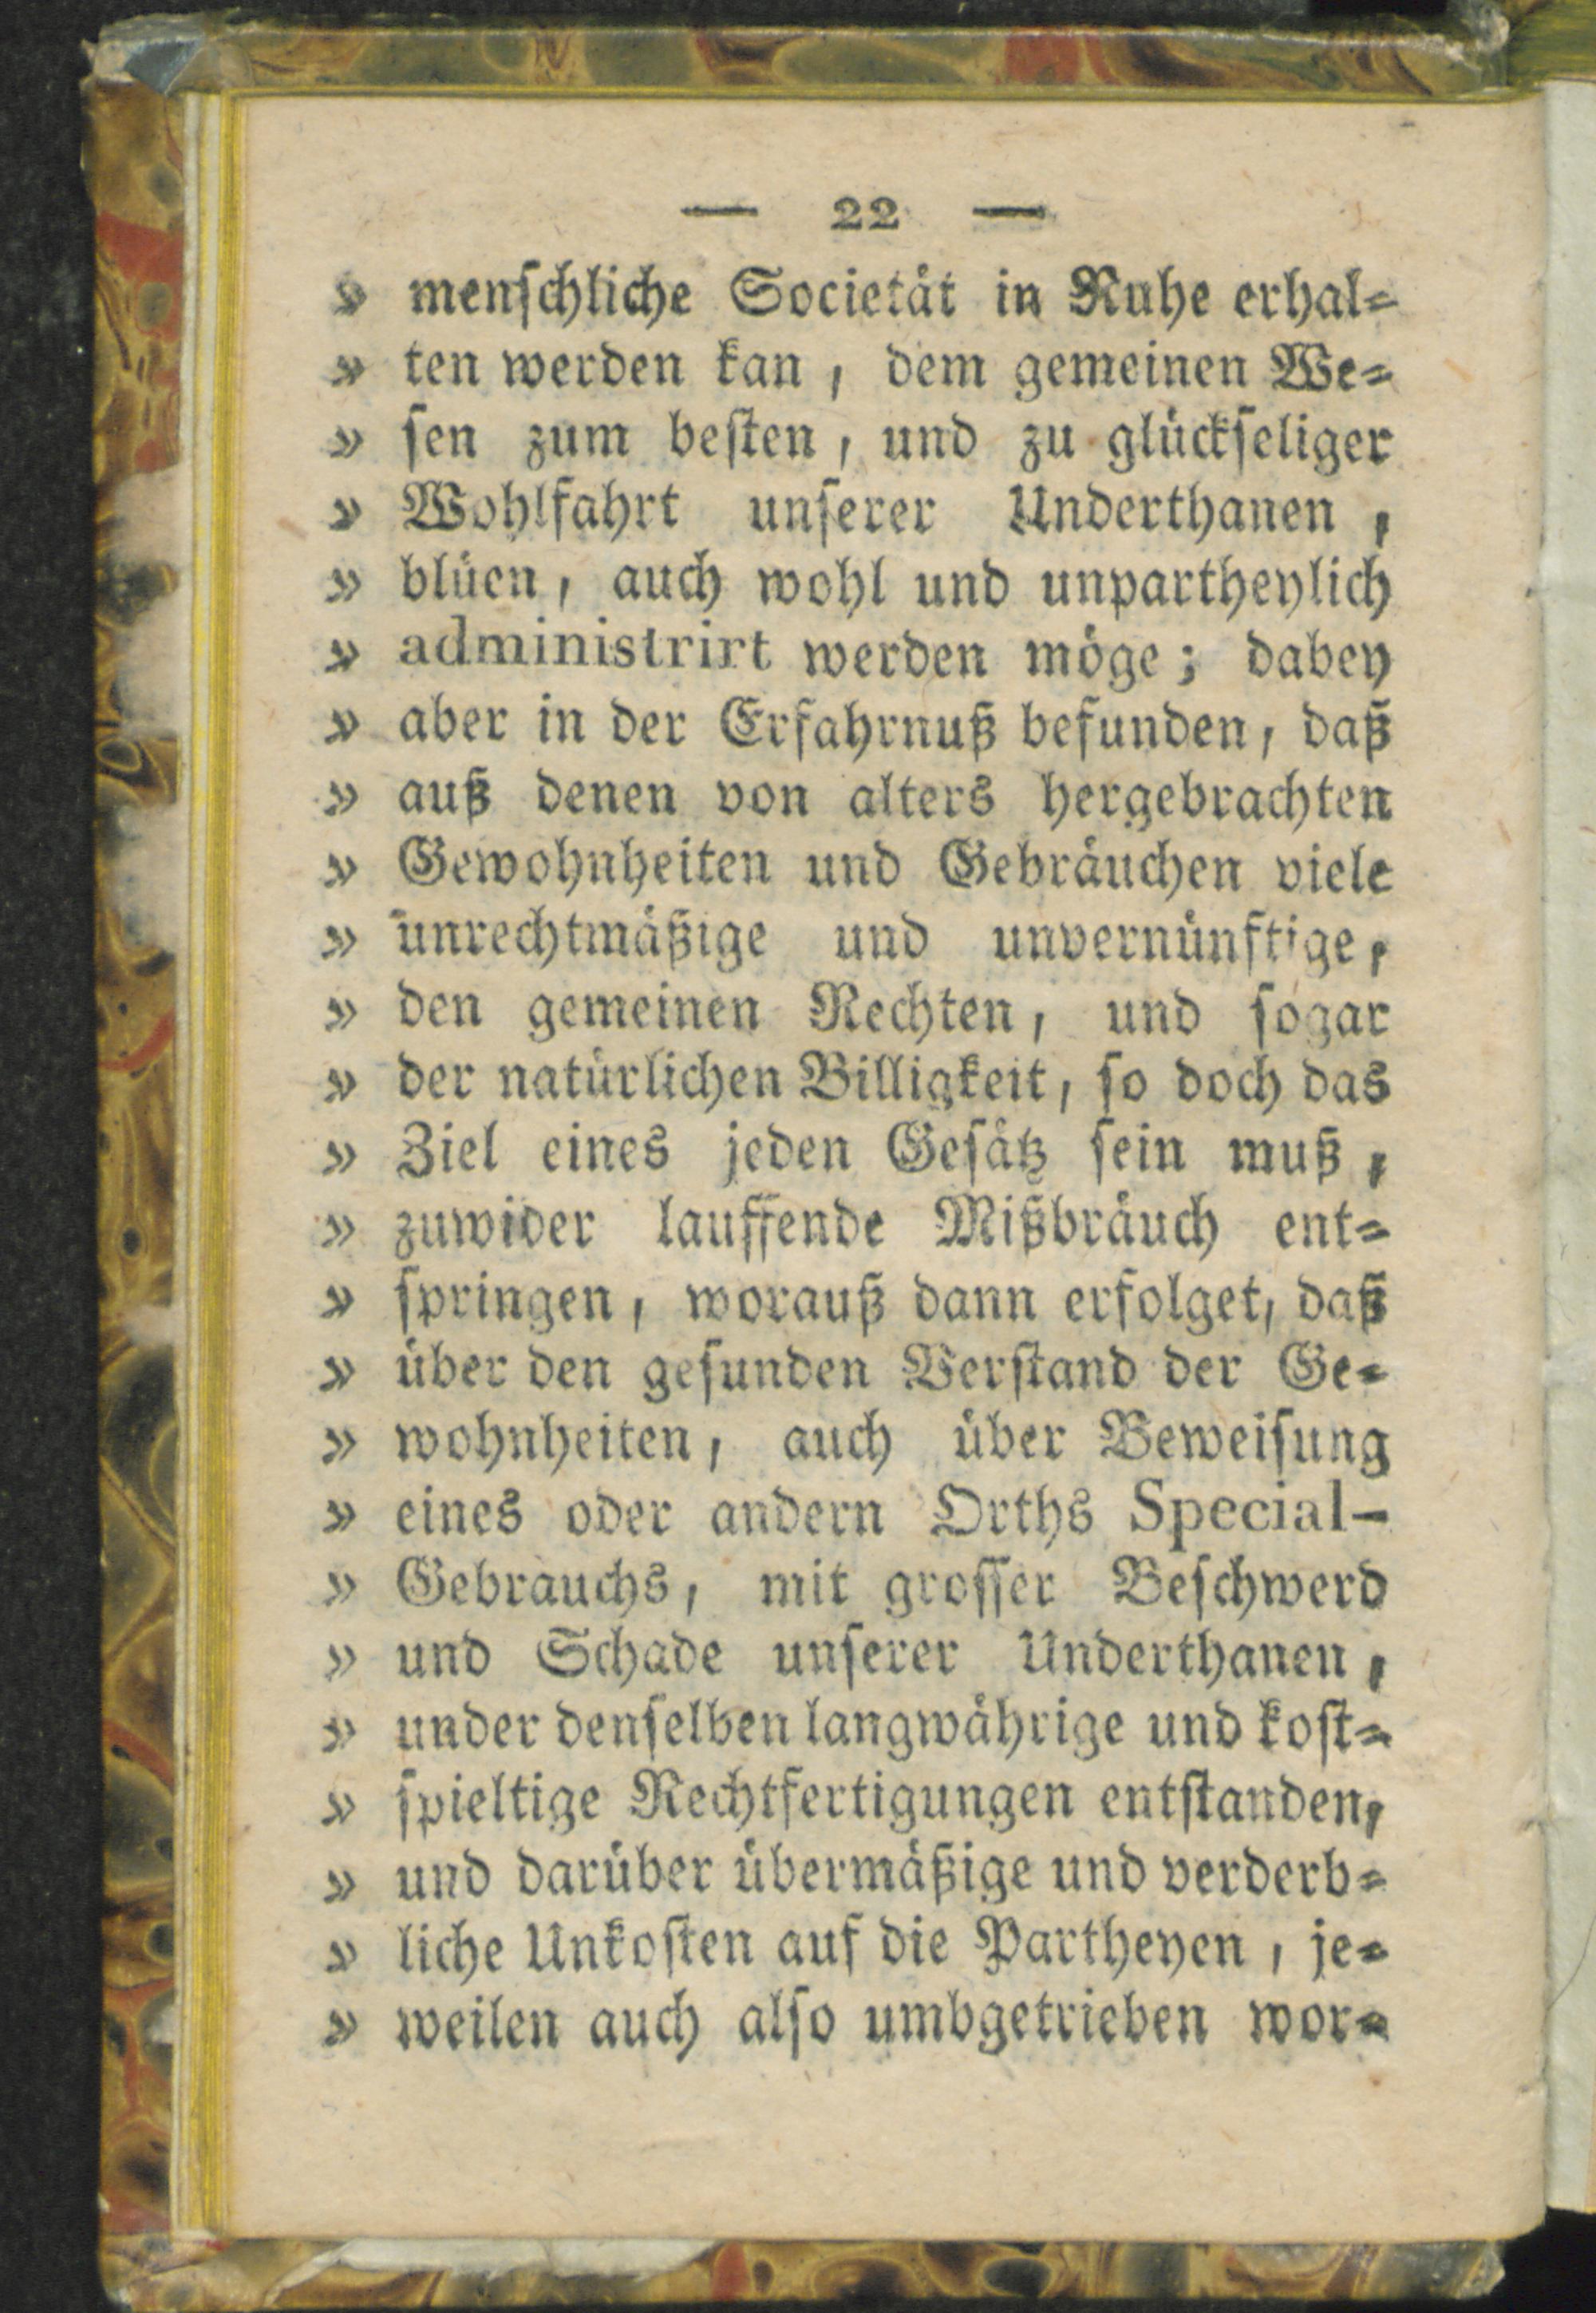 — 22 —
» menschliche Societät in Ruhe erhal=
» ten werden kan, dem gemeinen We=
» sen zum besten, und zu glückseliger
» Wohlfahrt unserer Underthanen,
» blüen, auch wohl und unpartheylich
» administrirt werden möge; dabey
» aber in der Erfahrnuß befunden, daß
» auß denen von alters hergebrachten
» Gewohnheiten und Gebräuchen viele
» unrechtmäßige und unvernünftige,
» den gemeinen Rechten, und sogar
» der natürlichen Billigkeit, so doch das
» Ziel eines jeden Gesätz sein muß,
» zuwider lauffende Mißbräuch ent=
» springen, worauß dann erfolget, daß
» über den gesunden Verstand der Ge=
» wohnheiten, auch über Beweisung
» eines oder andern Orths Special-
» Gebrauchs, mit grosser Beschwerd
» und Schade unserer Underthanen,
» under denselben langwährige und kost=
» spieltige Rechtfertigungen entstanden,
» und darüber übermäßige und verderb=
» liche Unkosten auf die Partheyen, je=
» weilen auch also umbgetrieben wor=